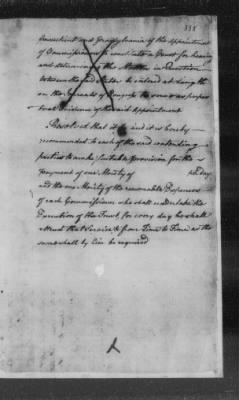 335
Connecticut and Pennsylvania of the appointment
of Commissioners to constitute a Court for hearing
and determining the Matter in Question
between the said States be entered at length
on the Journals of Congress to remain as perpet
ual Evidence of the said Appointment
Resolved that it be and it is hereby
recommended to each of the said contending
parties to make suitable Provision for the
Payment of one Moiety of per day
and the one Moiety of the reasonable Expences
of each Commissioner who shall undertake the
Execution of the Trust, for every day he shall
attend that Service & from Time to Time as the
same shall by Law be required